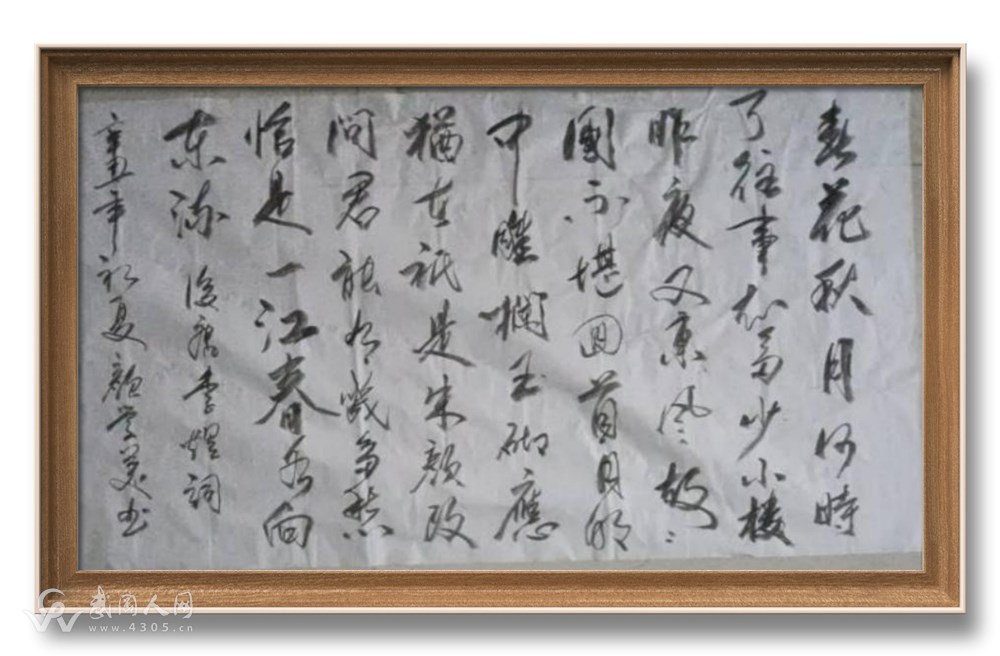 春花秋月何時
了往事知多少小樓
昨夜又東风故
國不堪回首月明
中雕欄玉砌應
猶在祇是朱顏改
問君能有幾多愁
恰是一江春水向
東流
後唐李煜詞
辛丑年初夏顏学美书
武冈人网
www.4305.cn